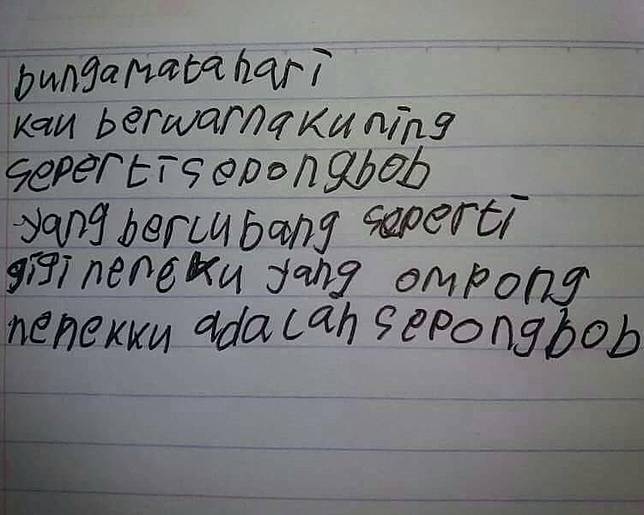 bungamatahari
kau berwarnakuning
sepertisepongbob
yang berlubang seperti
gigi nenekku yang ompong
nenekku adalah sepongbob